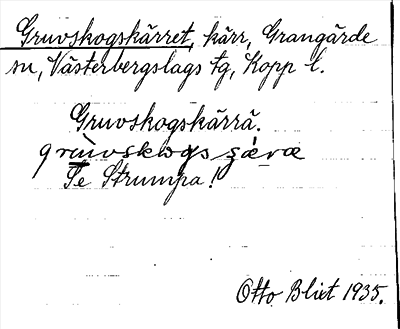 Gruvskogskärret, kärr, Grangärde
sn, Västerbergslags tg, Kopp l.
Gruvskogskärrä.
Se Strumpa!
Otto Blixt 1935.